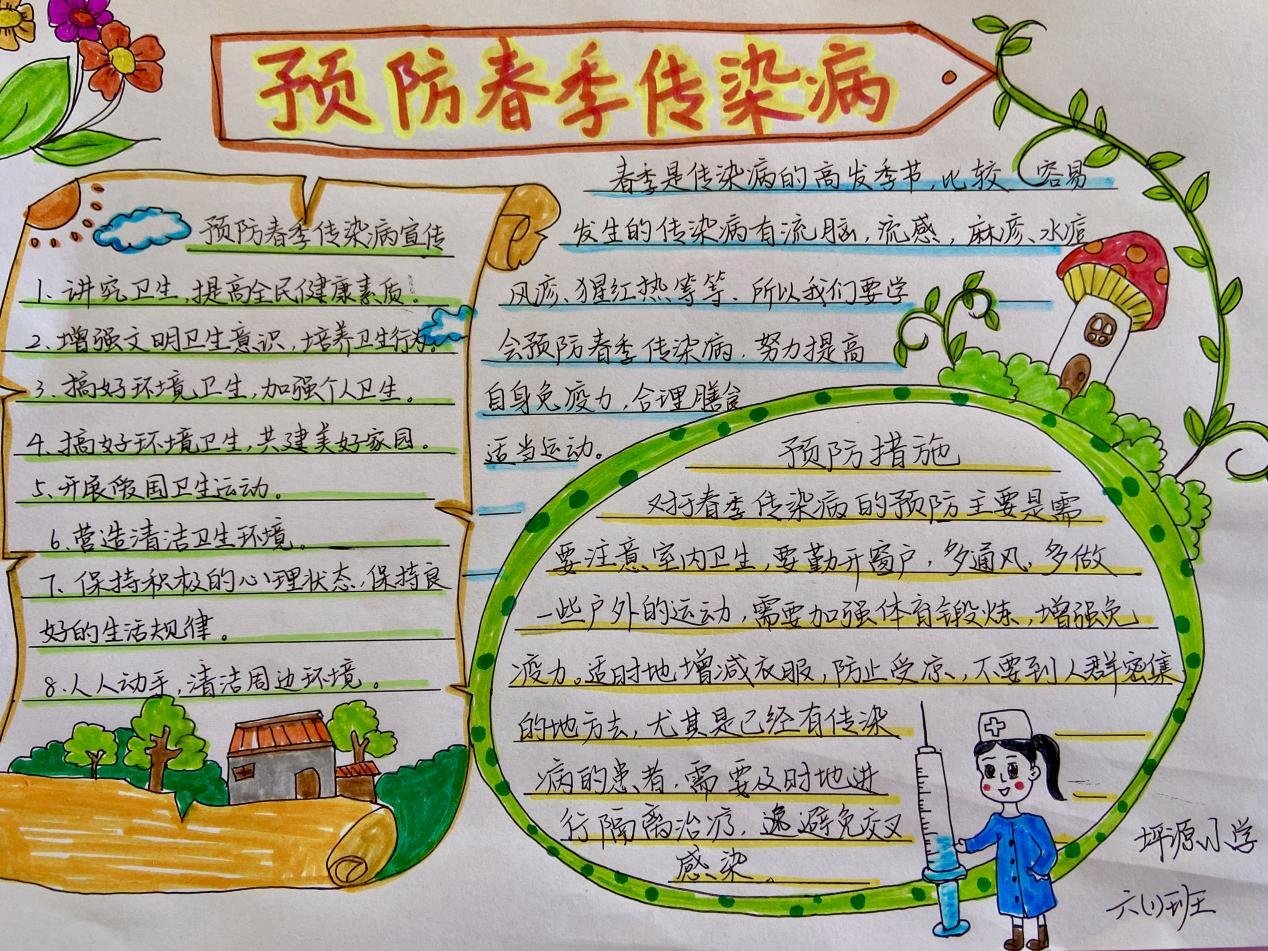 预防春季传染病
预防春季传染病宣传
1、讲究卫生,提高全民健康素质。
2、增强文明卫生意识,培养卫生行为。
3、搞好环境卫生,加强个人卫生。
4、搞好环境卫生,共建美好家园。
5、开展爱国卫生运动。
6、营造清洁卫生环境。
7、保持积极的心理状态,保持良
好的生活规律。
8、人人动手,清洁周边环境。
春季是传染病的高发季节,比较 容易
发生的传染病有流脑,流感,麻疹、水痘
风疹、猩红热等等,所以我们要学
会预防春季传染病,努力提高
自身免疫力,合理膳食
适当运动。
预防措施
对于春季传染病的预防主要是需
要注意室内卫生,要勤开窗户,多通风,多做
一些户外的运动,需要加强体育锻炼,增强免
疫力。适时地增减衣服,防止受凉,不要到人群密集
的地方去,尤其是已经有传染
病的患者,需要及时地进
行隔离治疗,避免交叉
感染。
坪源小学
六(1)班